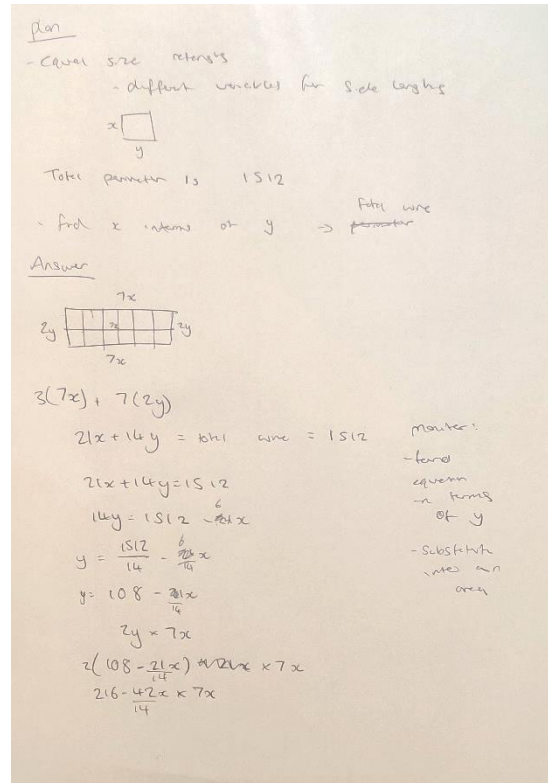 plan
- Equal size
- different variables for side lengths
x
y
Total perimeter is 1512
total wire
- find x interms of y →
Answer
7x
2y 2y
7x
3(7x) + 7(2y)
21x + 14y = total wire = 1512
21x + 14y = 1512
14y = 1512 - x
y = 1512/14 - x/14
y = 108 - 21x/14
2y × 7x
2(108 - 21x/14) × 7x
216 - 42x/14 × 7x
monitor:
- found
equation
in terms
of y
- substitute
into an
area